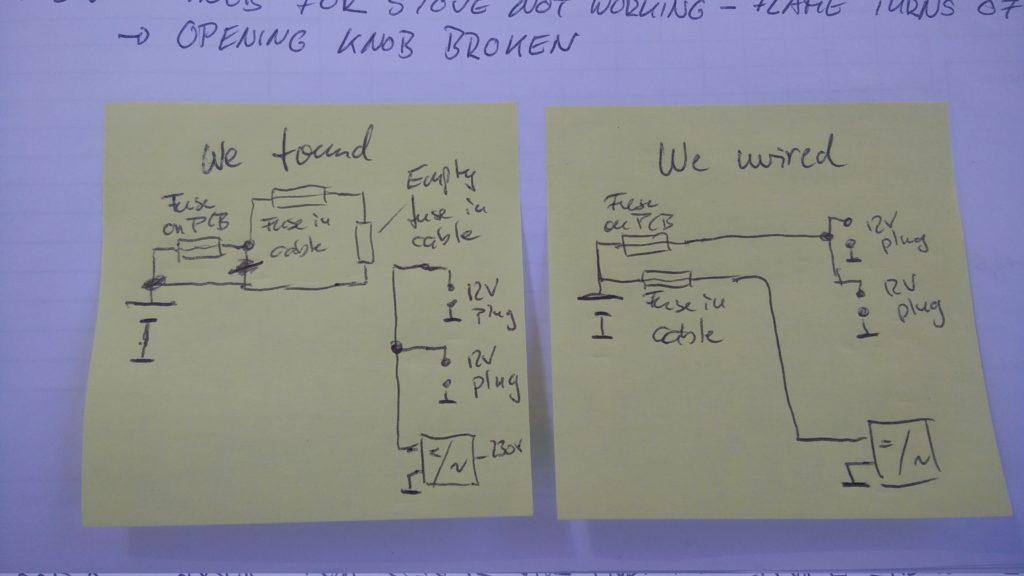 KNOB FOR STOVE NOT WORKING - FLAME TURNS OF
→ OPENING KNOB BROKEN
We found
Fuse
on PCB
Fuse in
cable
Empty
fuse in
cable
12V
plug
12V
plug
=/~
230V
We wired
Fuse
on PCB
Fuse in
cable
12V
plug
12V
plug
=/~